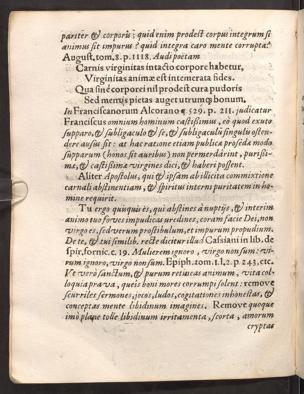 pariter & corporis; quid enim prodest corpus integrum si
animus sit impurus? quid integra caro mente corrupta?
August, tom, 8. p. 1118. Audi poëtam
Carnis virginitas intacto corpore habetur,
Virginitas animæ est intemerata fides.
Qua sine corporei nil prodest cura pudoris
Sed mentis pietas auget utrumq; bonum.
In Franciscanorum Alcorano 529. p. 211. judicatur
Franciscus omnium hominum castissimus, eò quod exuto
supparo, & subligaculo & se, & subligaculi singulu osten-
dere ausus sit: at hac ratione etiam publica prosedæ modo
supparum (honos sit auribus) non permerdârint, purissi-
mæ, & castissimæ virgines dici, & haberi possent.
Aliter Apostolus, qui & ipsam ab illicita commixtione
carnali abstinentiam, & spiritus interni puritatem in ho-
mine requirit.
Tu ergo quisquis es, qui abstines à nuptijs, & interim
animo tuo foves impudicas uredines, coram facie Dei, non
virgo es, sed verum prostibulum, et impurum propudium.
De te, & tui similib. rectè dicitur illud Cassiani in lib. de
spir. fornic. c. 19. Mulierem ignoro, virgo non sum: vi-
rum ignoro, virgo non sum. Epiph. tom. 1. l. 2. p. 243. etc.
Ve verò sanctum, & purum retineas animum, vita col-
loquia prava, queis boni mores corrumpi solent: remove
scurriles sermones, jocos, ludos, cogitationes inhonestas, &
conceptas mente libidinum imagines. Remove quoque
imò planè tolle libidinum irritamenta, scorta, amorum
cryptas